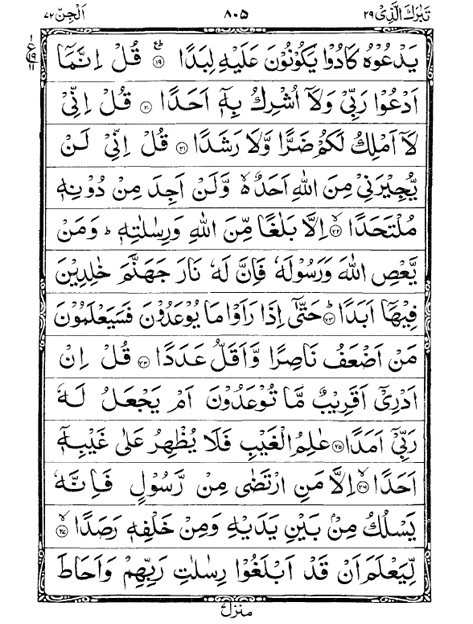 تَبٰرَكَ الَّذِىْ ٢٩ ٨٠٥ اَلْجِنّ ٧٢
يَدْعُوْهُ كَادُوْا يَكُوْنُوْنَ عَلَيْهِ لِبَدًا ۝١٩ قُلْ اِنَّمَاۤ
اَدْعُوْا رَبِّىْ وَلَاۤ اُشْرِكُ بِهٖۤ اَحَدًا ۝٢٠ قُلْ اِنِّىْ
لَاۤ اَمْلِكُ لَكُمْ ضَرًّا وَّلَا رَشَدًا ۝٢١ قُلْ اِنِّىْ لَنْ
يُّجِيْرَنِىْ مِنَ اللّٰهِ اَحَدٌ ۙ وَّلَنْ اَجِدَ مِنْ دُوْنِهٖ
مُلْتَحَدًا ۝٢٢ اِلَّا بَلٰغًا مِّنَ اللّٰهِ وَرِسٰلٰتِهٖ ؕ وَمَنْ
يَّعْصِ اللّٰهَ وَرَسُوْلَهٗ فَاِنَّ لَهٗ نَارَ جَهَنَّمَ خٰلِدِيْنَ
فِيْهَاۤ اَبَدًا ۝٢٣ حَتّٰىۤ اِذَا رَاَوْا مَا يُوْعَدُوْنَ فَسَيَعْلَمُوْنَ
مَنْ اَضْعَفُ نَاصِرًا وَّاَقَلُّ عَدَدًا ۝٢٤ قُلْ اِنْ
اَدْرِىْۤ اَقَرِيْبٌ مَّا تُوْعَدُوْنَ اَمْ يَجْعَلُ لَهٗ
رَبِّىْۤ اَمَدًا ۝٢٥ عٰلِمُ الْغَيْبِ فَلَا يُظْهِرُ عَلٰى غَيْبِهٖۤ
اَحَدًا ۝٢٦ اِلَّا مَنِ ارْتَضٰى مِنْ رَّسُوْلٍ فَاِنَّهٗ
يَسْلُكُ مِنْۢ بَيْنِ يَدَيْهِ وَمِنْ خَلْفِهٖ رَصَدًا ۝٢٧
لِّيَعْلَمَ اَنْ قَدْ اَبْلَغُوْا رِسٰلٰتِ رَبِّهِمْ وَاَحَاطَ
منزل ٧